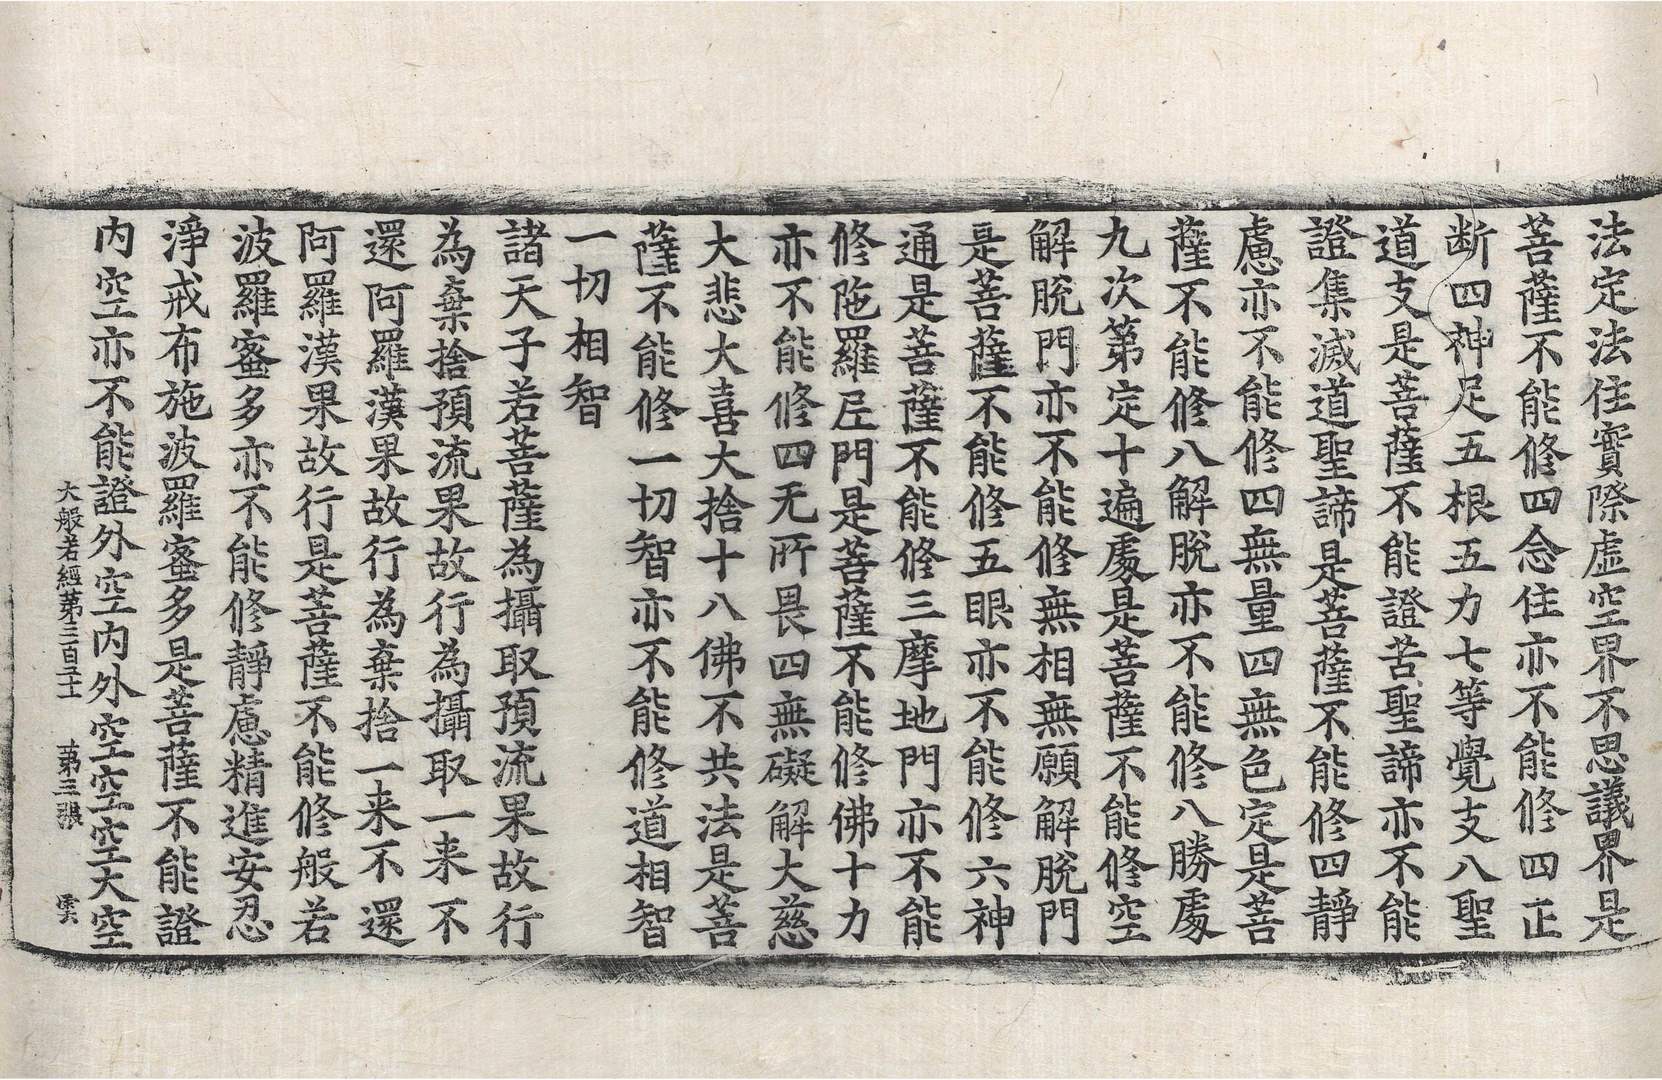 法定法住實際虛空界不思議界是
菩薩不能修四念住亦不能修四正
断四神足五根五力七等覺支八聖
道支是菩薩不能證苦聖諦亦不能
證集滅道聖諦是菩薩不能修四靜
慮亦不能修四無量四無色定是菩
薩不能修八解脫亦不能修八勝處
九次第定十遍處是菩薩不能修空
解脫門亦不能修無相無願解脫門
是菩薩不能修五眼亦不能修六神
通是菩薩不能修三摩地門亦不能
修陁羅尼門是菩薩不能修佛十力
亦不能修四无所畏四無礙解大慈
大悲大喜大捨十八佛不共法是菩
薩不能修一切智亦不能修道相智
一切相智
諸天子若菩薩為攝取預流果故行
為棄捨預流果故行為攝取一来不
還阿羅漢果故行為棄捨一来不還
阿羅漢果故行是菩薩不能修般若
波羅蜜多亦不能修靜慮精進安忍
淨戒布施波羅蜜多是菩薩不能證
內空亦不能證外空內外空空空大空
大般若經第三百二十 第三張 雲